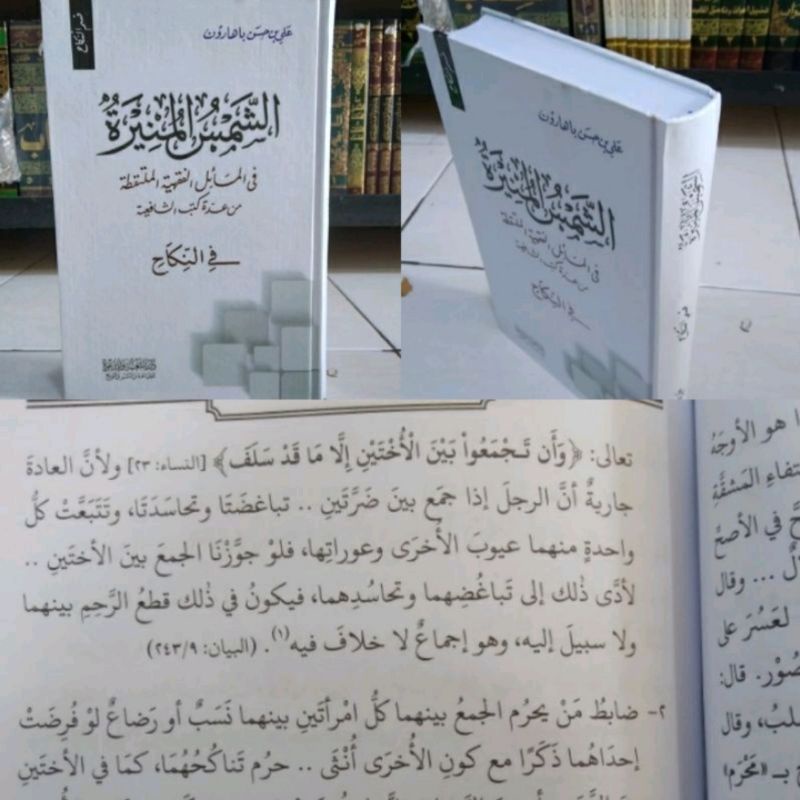 قسم النكاح
علي بن حسن باهارون
الشمس المنيرة
في المسائل الفقهية الملتقطة
من عدة كتب الشافعية
في النكاح
علي بن حسن باهارون
الشمس المنيرة
في المسائل الفقهية الملتقطة
من عدة كتب الشافعية
في النكاح
الشمس المنيرة
تعالى: ﴿وَأَن تَجْمَعُواْ بَيْنَ الْأُخْتَيْنِ إِلَّا مَا قَدْ سَلَفَ﴾ [النساء: ٢٣] ولأنَّ العادةَ
جاريةٌ أنَّ الرجلَ إذا جمَع بينَ ضَرَّتَينِ .. تباغضَتَا وتحاسَدَتَا، وتَتَبَعَّت كلُّ
واحدةٍ منهما عيوبَ الأُخرَى وعوراتِها، فلوْ جوَّزْنَا الجمعَ بينَ الأختَينِ ..
لأدَّى ذٰلك إلى تَباغُضِهما وتحاسُدِهما، فيكونُ في ذٰلك قطعُ الرَّحِمِ بينهما
ولا سبيلَ إليه، وهو إجماعٌ لا خلافَ فيه(١). (البيان: ٢٤٣/٩)
٢- ضابطُ مَنْ يحرُم الجمعُ بينهما كلُّ امْرأتَينِ بينهما نَسَبٌ أو رَضاعٌ لوْ فُرِضَتْ
إحدَاهُما ذَكَرًا مع كونِ الأُخرَى أُنْثَى .. حرُم تَناكُحُهُمَا، كمَا في الأختَينِ
هو الأوجَهُ
المَشقَّةِ
في الأصحِّ
... وقال
لعَسُرَ على
قال:
وقال
بـ «مَحْرَم»